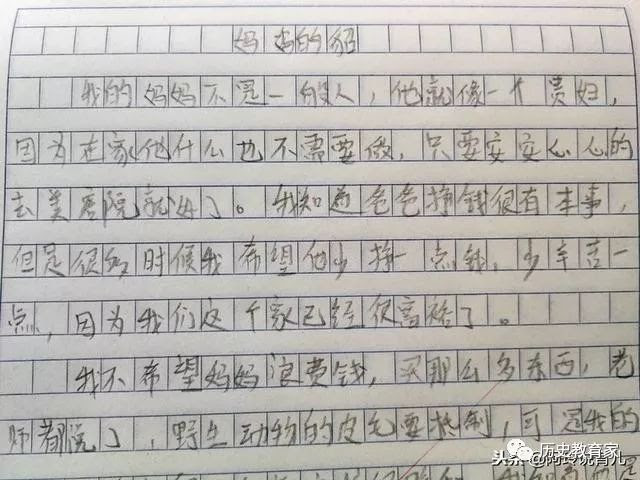 妈妈的貂
我的妈妈不是一般人，他就像一个贵妇，
因为在家他什么也不需要做，只要安安心心的
去美容院就好了。我知道爸爸挣钱很有本事，
但是很多时候我希望他少挣一点钱，少辛苦一
点，因为我们这个家已经很富裕了。
我不希望妈妈浪费钱，买那么多东西，老
师都说了，野生动物的皮毛要抵制，可是我的
历史教育家